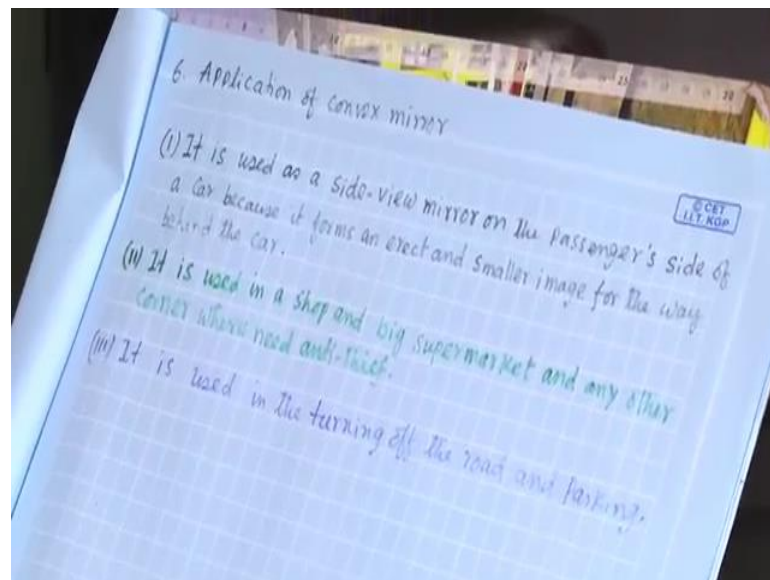 6. Application of convex mirror
(i) It is used as a side-view mirror on the passenger's side of
a car because it forms an erect and smaller image for the way
behind the car.
(ii) It is used in a shop and big supermarket and any other
corner where need anti-thief.
(iii) It is used in the turning off the road and parking.
© CET
I.I.T. KGP